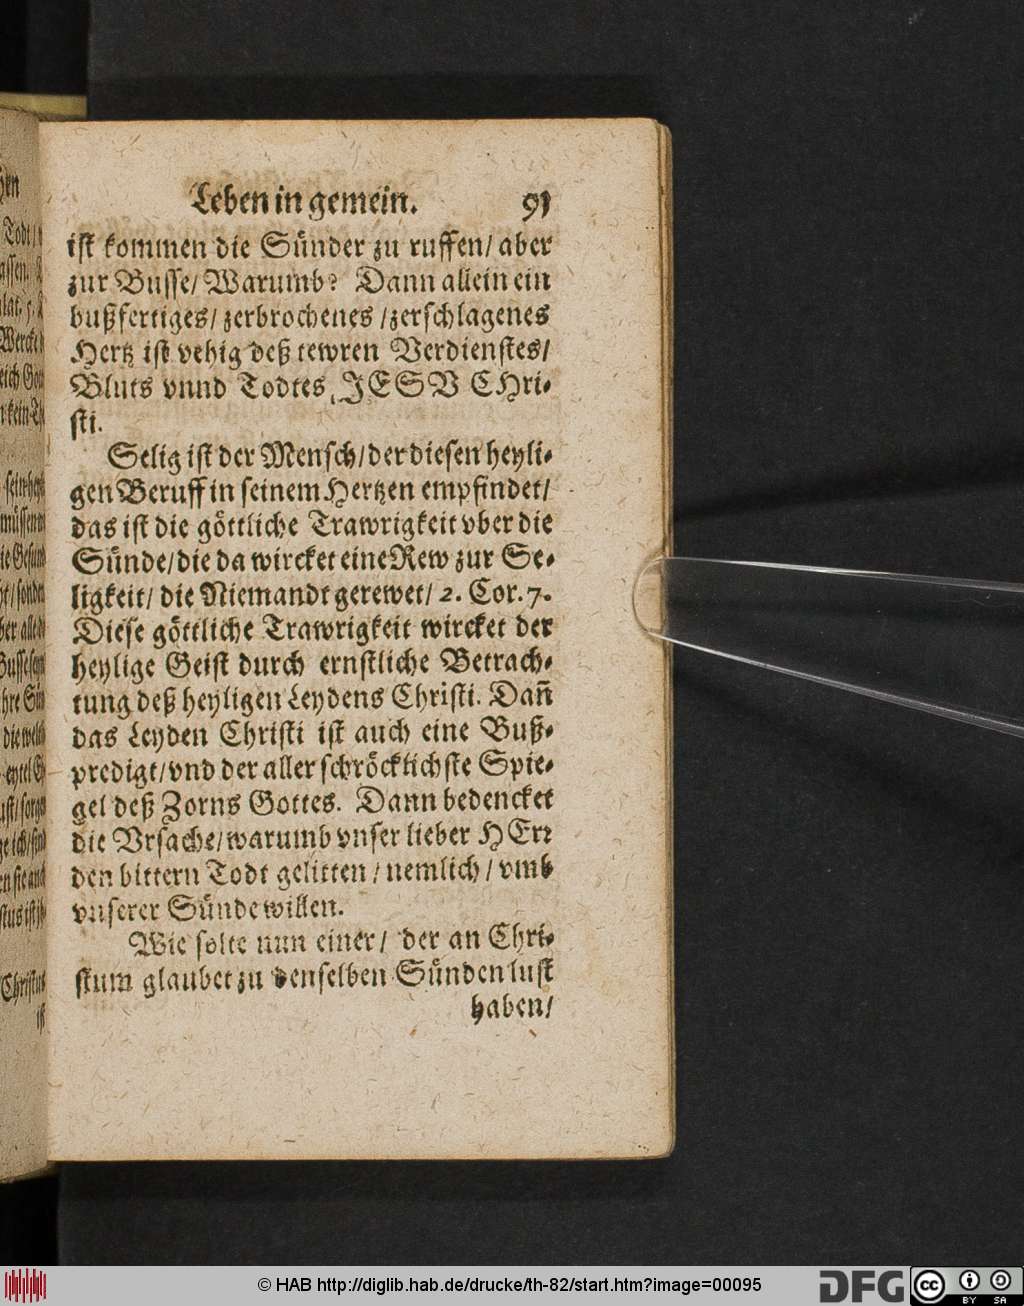 Leben in gemein. 91
ist kommen die Sünder zu ruffen/ aber
zur Busse/ Warumb? Dann allein ein
bußfertiges/ zerbrochenes /zerschlagenes
Hertz ist vehig deß tewren Verdienstes/
Bluts vnnd Todtes JESV CHri-
sti.
Selig ist der Mensch/ der diesen heyli-
gen Beruff in seinem Hertzen empfindet/
das ist die göttliche Trawrigkeit vber die
Sünde/ die da wircket eine Rew zur Se-
ligkeit/ die Niemandt gerewet/ 2. Cor. 7.
Diese göttliche Trawrigkeit wircket der
heylige Geist durch ernstliche Betrach-
tung deß heyligen Leydens Christi. Dañ
das Leyden Christi ist auch eine Buß-
predigt/ vnd der aller schröcklichste Spie-
gel deß Zorns Gottes. Dann bedencket
die Vrsache/ warumb vnser lieber HErr
den bittern Todt gelitten / nemlich / vmb
vnserer Sünde willen.
Wie solte nun einer/ der an Chri-
stum glaubet zu denselben Sünden lust
haben/
© HAB http://diglib.hab.de/drucke/th-82/start.htm?image=00095
DFG
cc BY SA